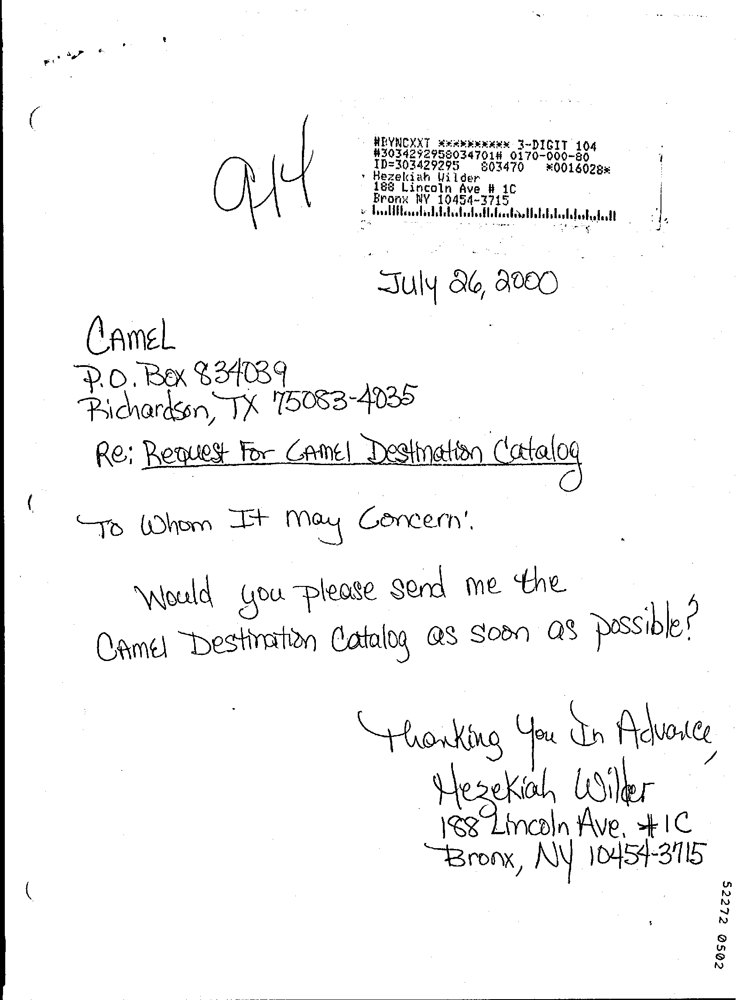 914
#BYNCXXT ********** 3-DIGIT 104
#3034292958034701# 0170-000-80
ID=303429295 803470 *0016028*
Hezekiah Wilder
188 Lincoln Ave # 1C
Bronx NY 10454-3715
July 26, 2000
CAMEL
P.O. Box 834039
Richardson, TX 75083-4035
Re: Request For CAMEL Destination Catalog
To Whom It May Concern:
Would you please send me the
CAMEL Destination Catalog as soon as possible?
Thanking You In Advance,
Hezekiah Wilder
188 Lincoln Ave. #1C
Bronx, NY 10454-3715
52272 0502